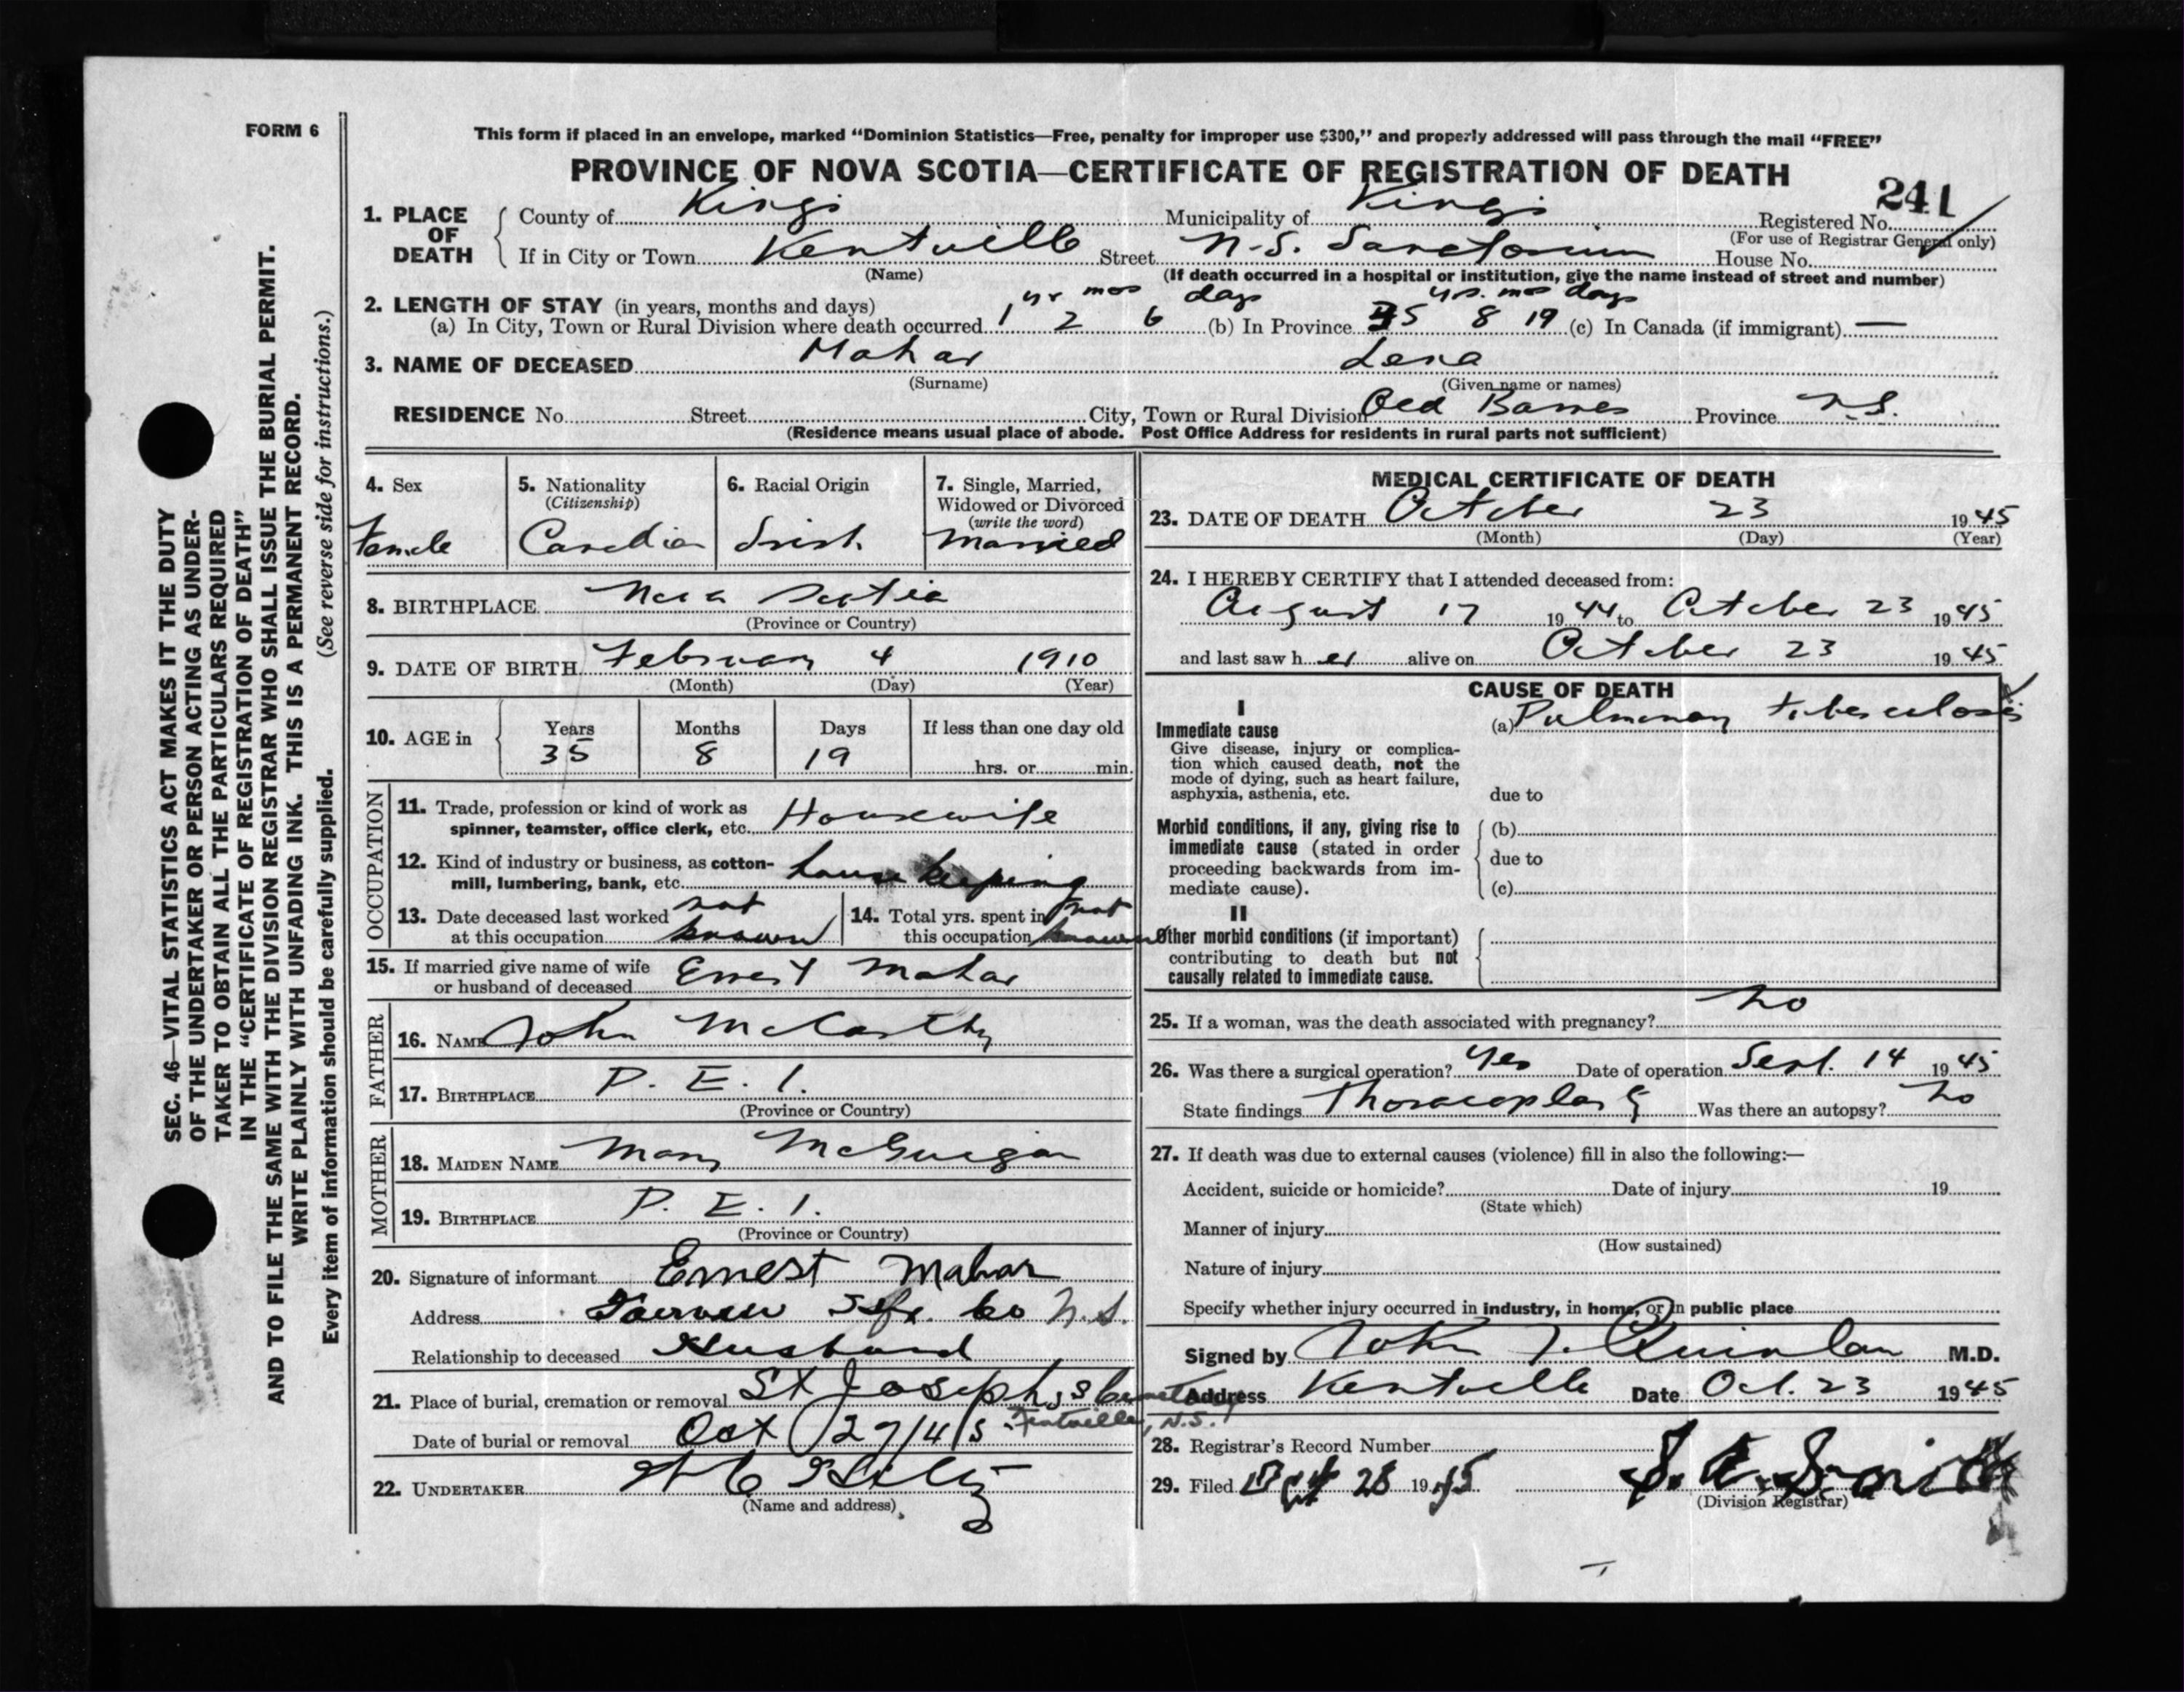 FORM 6
This form if placed in an envelope, marked “Dominion Statistics—Free, penalty for improper use $300,” and properly addressed will pass through the mail “FREE”
PROVINCE OF NOVA SCOTIA—CERTIFICATE OF REGISTRATION OF DEATH
241
1. PLACE OF DEATH
County of Kings Municipality of Kings Registered No.
(For use of Registrar General only)
If in City or Town Kentville Street N.S. Sanatorium House No.
(Name) (If death occurred in a hospital or institution, give the name instead of street and number)
2. LENGTH OF STAY (in years, months and days) yr mos days yrs. mos days
(a) In City, Town or Rural Division where death occurred 1 2 6 (b) In Province 35 8 19 (c) In Canada (if immigrant) —
3. NAME OF DECEASED Mahar Lena
(Surname) (Given name or names)
RESIDENCE No. Street City, Town or Rural Division Old Barnes Province N.S.
(Residence means usual place of abode. Post Office Address for residents in rural parts not sufficient)
4. Sex
Female
5. Nationality
(Citizenship)
Canadian
6. Racial Origin
Irish
7. Single, Married,
Widowed or Divorced
(write the word)
Married
8. BIRTHPLACE Nova Scotia
(Province or Country)
9. DATE OF BIRTH February 4 1910
(Month) (Day) (Year)
10. AGE in
Years Months Days If less than one day old
35 8 19
hrs. or min.
OCCUPATION
11. Trade, profession or kind of work as
spinner, teamster, office clerk, etc. Housewife
12. Kind of industry or business, as cotton-
mill, lumbering, bank, etc. house keeping
13. Date deceased last worked not
at this occupation known
14. Total yrs. spent in not
this occupation known
15. If married give name of wife
or husband of deceased Ernest Mahar
FATHER
16. NAME John McCarthy
17. BIRTHPLACE P. E. I.
(Province or Country)
MOTHER
18. MAIDEN NAME Mary McGuigan
19. BIRTHPLACE P. E. I.
(Province or Country)
20. Signature of informant Ernest Mahar
Address Fairview Hfx. Co N.S.
Relationship to deceased Husband
21. Place of burial, cremation or removal St Josephs Cemetery
Kentville, N.S.
Date of burial or removal Oct 27/45
22. UNDERTAKER
(Name and address)
MEDICAL CERTIFICATE OF DEATH
23. DATE OF DEATH October 23 1945
(Month) (Day) (Year)
24. I HEREBY CERTIFY that I attended deceased from:
August 17 1944 to October 23 1945
and last saw her alive on October 23 1945
CAUSE OF DEATH
I
Immediate cause
Give disease, injury or complica-
tion which caused death, not the
mode of dying, such as heart failure,
asphyxia, asthenia, etc.
(a) Pulmonary tuberculosis
due to
Morbid conditions, if any, giving rise to
immediate cause (stated in order
proceeding backwards from im-
mediate cause).
(b)
due to
(c)
II
Other morbid conditions (if important)
contributing to death but not
causally related to immediate cause.
25. If a woman, was the death associated with pregnancy? No
26. Was there a surgical operation? Yes Date of operation Sept. 14 1945
State findings Thoracoplasty Was there an autopsy? No
27. If death was due to external causes (violence) fill in also the following:—
Accident, suicide or homicide? Date of injury 19
(State which)
Manner of injury
(How sustained)
Nature of injury
Specify whether injury occurred in industry, in home, or in public place
Signed by John J. Quinlan M.D.
Address Kentville Date Oct. 23 1945
28. Registrar's Record Number
29. Filed Oct 28 1945
(Division Registrar)
SEC. 46—VITAL STATISTICS ACT MAKES IT THE DUTY
OF THE UNDERTAKER OR PERSON ACTING AS UNDER-
TAKER TO OBTAIN ALL THE PARTICULARS REQUIRED
IN THE “CERTIFICATE OF REGISTRATION OF DEATH”
AND TO FILE THE SAME WITH THE DIVISION REGISTRAR WHO SHALL ISSUE THE BURIAL PERMIT.
WRITE PLAINLY WITH UNFADING INK. THIS IS A PERMANENT RECORD.
Every item of information should be carefully supplied. (See reverse side for instructions.)